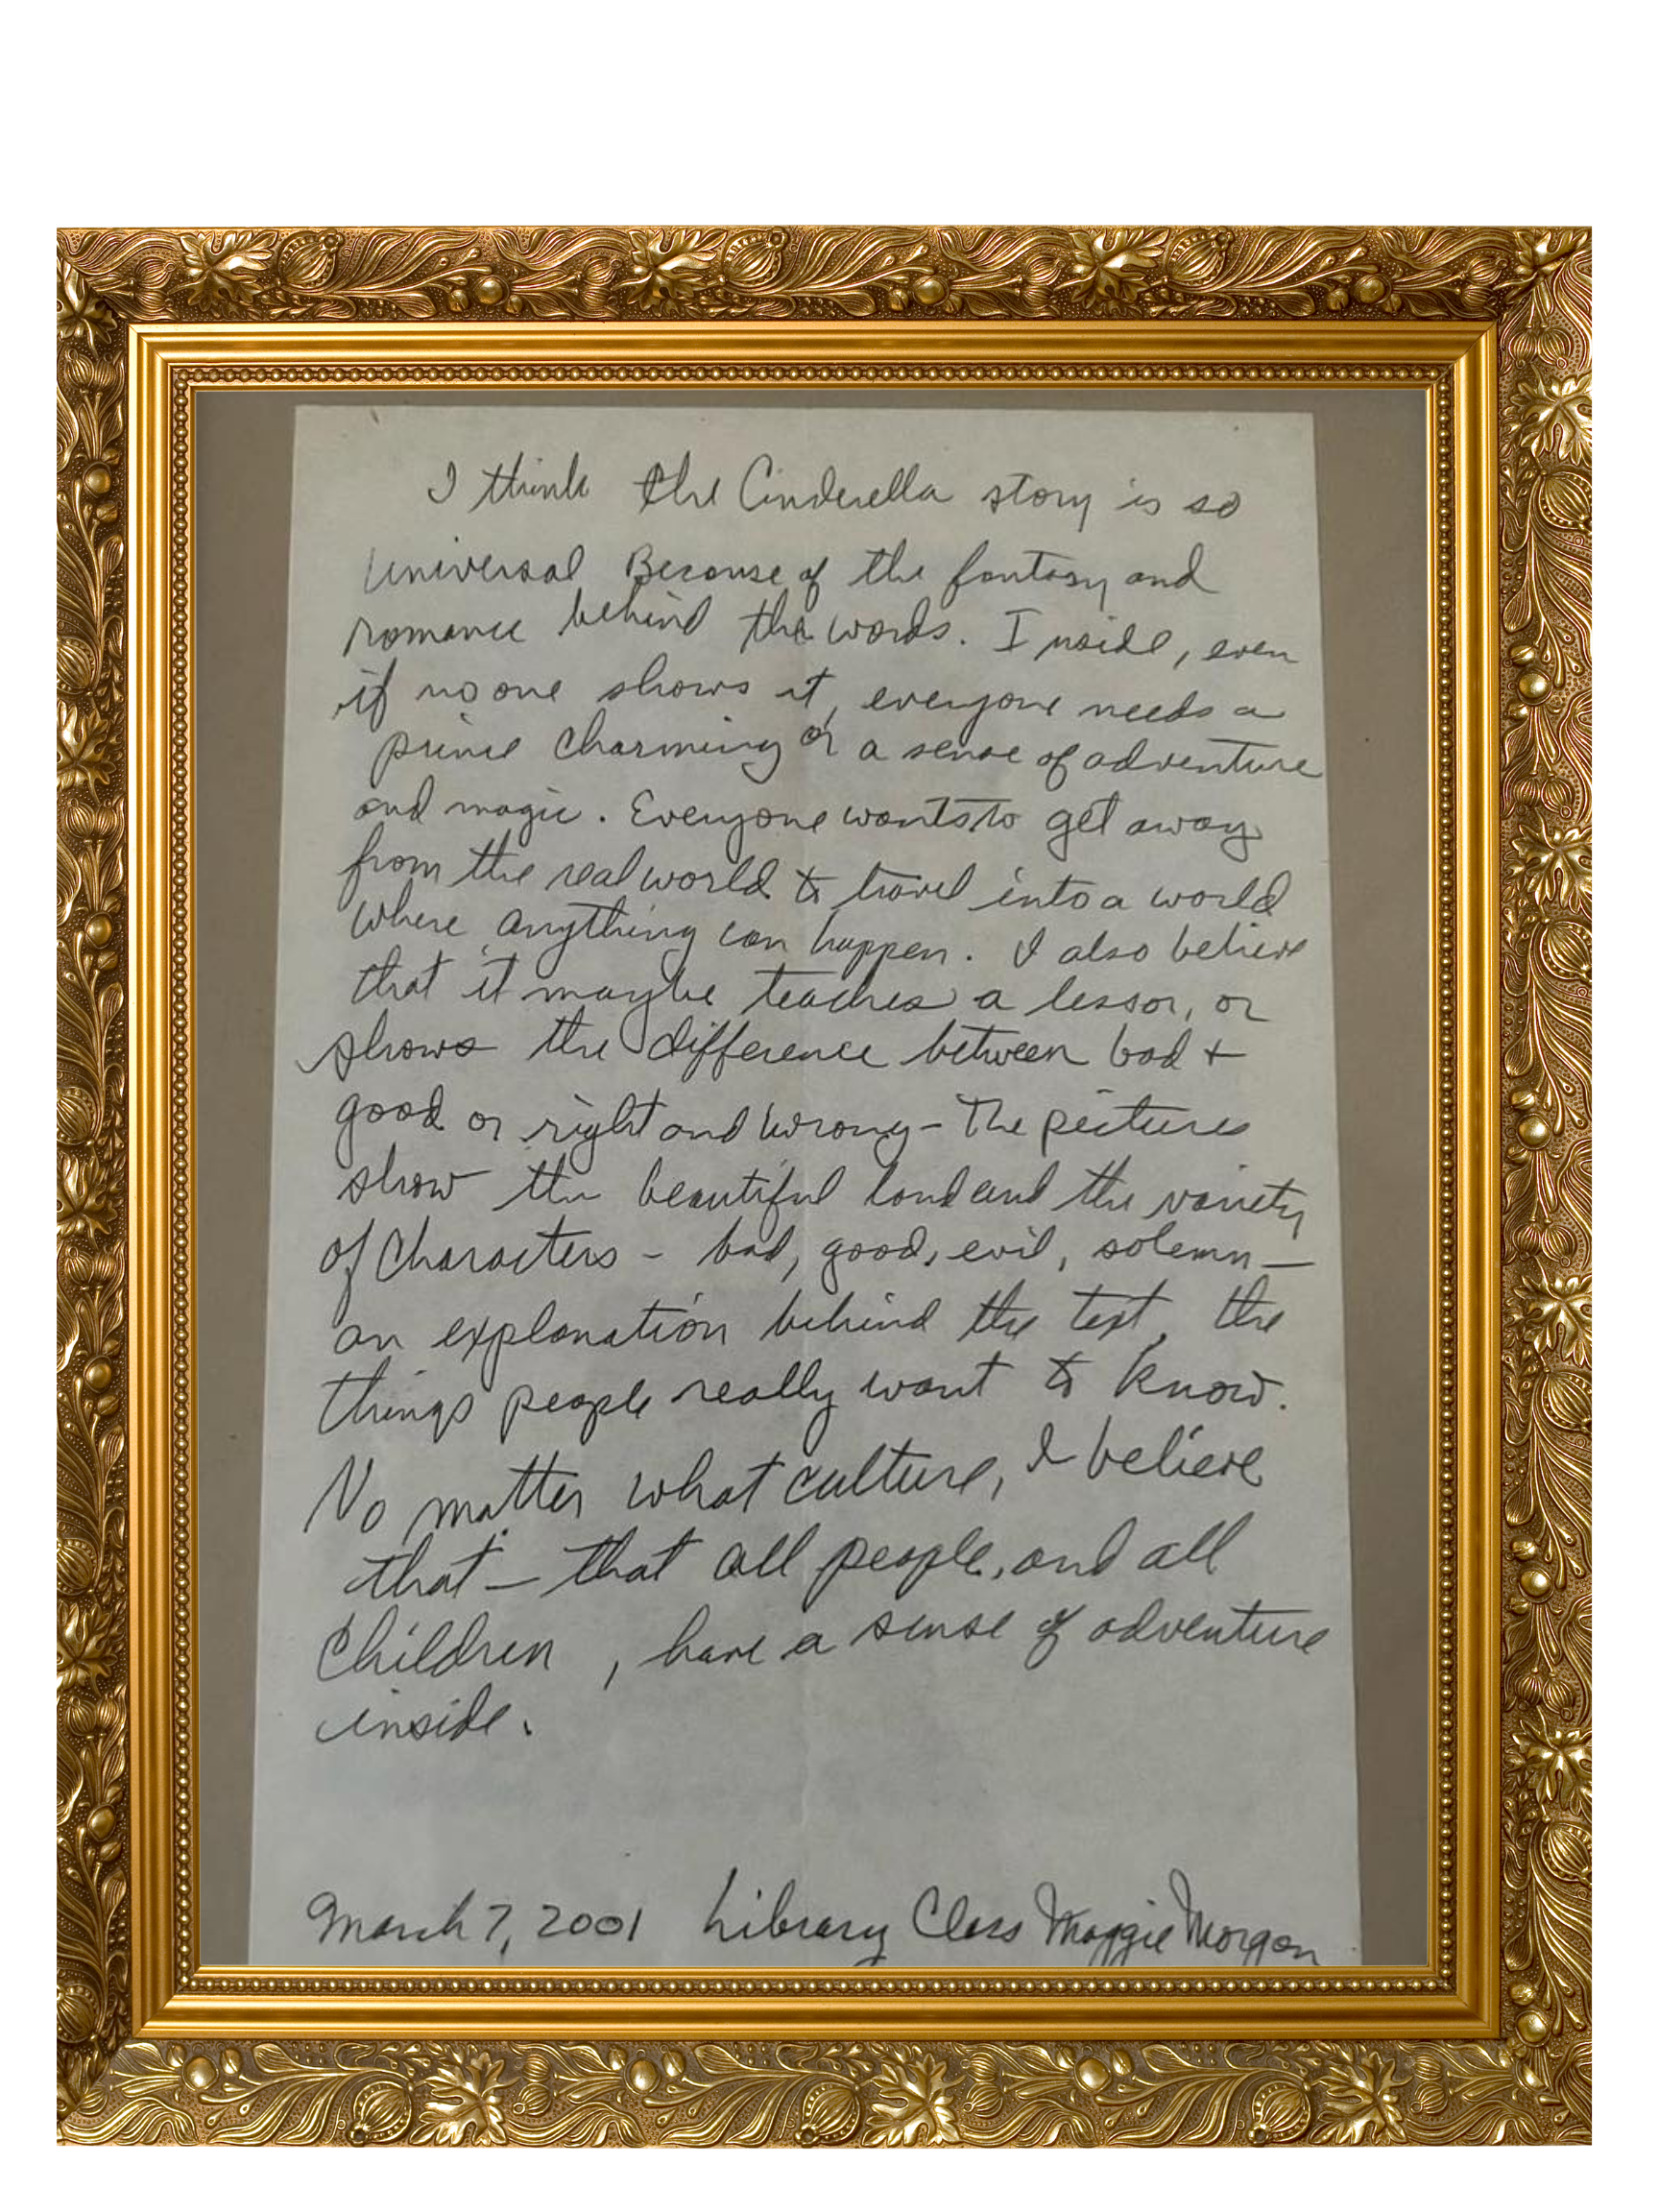 I think the Cinderella story is so
universal Because of the fantasy and
romance behind the words. Inside, even
if no one shows it, everyone needs a
prince charming or a sense of adventure
and magic. Everyone wants to get away
from the real world to travel into a world
where anything can happen. I also believe
that it maybe teaches a lesson, or
shows the difference between bad +
good or right and wrong - The pictures
show the beautiful land and the variety
of characters - bad, good, evil, solemn -
an explanation behind the text, the
things people really want to know.
No matter what culture, I believe
that - that all people, and all
children, have a sense of adventure
inside.
March 7, 2001 Library Class Maggie Morgan